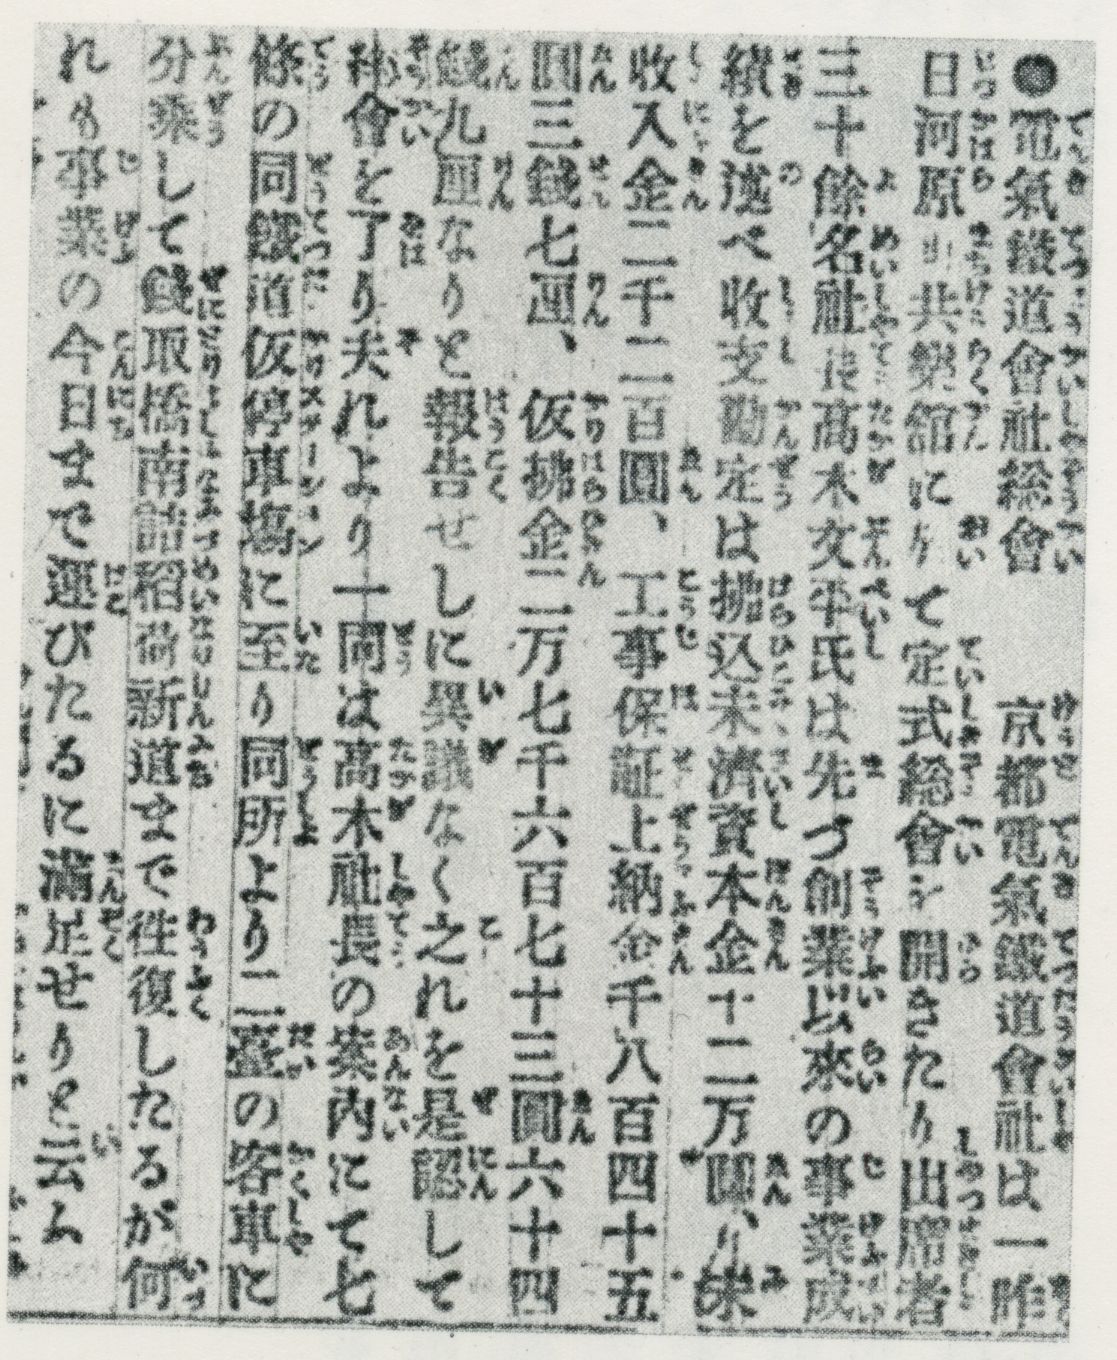 ●電氣鐵道會社総會　京都電氣鐵道會社は一昨
日河原町共樂舘に於て定式総會を開きたり出席者
三十餘名社長髙木文平氏は先づ創業以來の事業成
績を述べ收支勘定は拂込未濟資本金十二万圓、未
收入金二千二百圓、工事保証上納金千八百四十五
圓三錢七厘、仮拂金二万七千六百七十三圓六十四
錢九厘なりと報告せしに異議なく之れを是認して
総會を了り夫れより一同は髙木社長の案内にて七
條の同鐵道仮停車塲に至り同所より二臺の客車に
分乘して錢取橋南詰稻荷新道まで徃復したるが何
れも事業の今日まで運びたるに滿足せりと云ふ